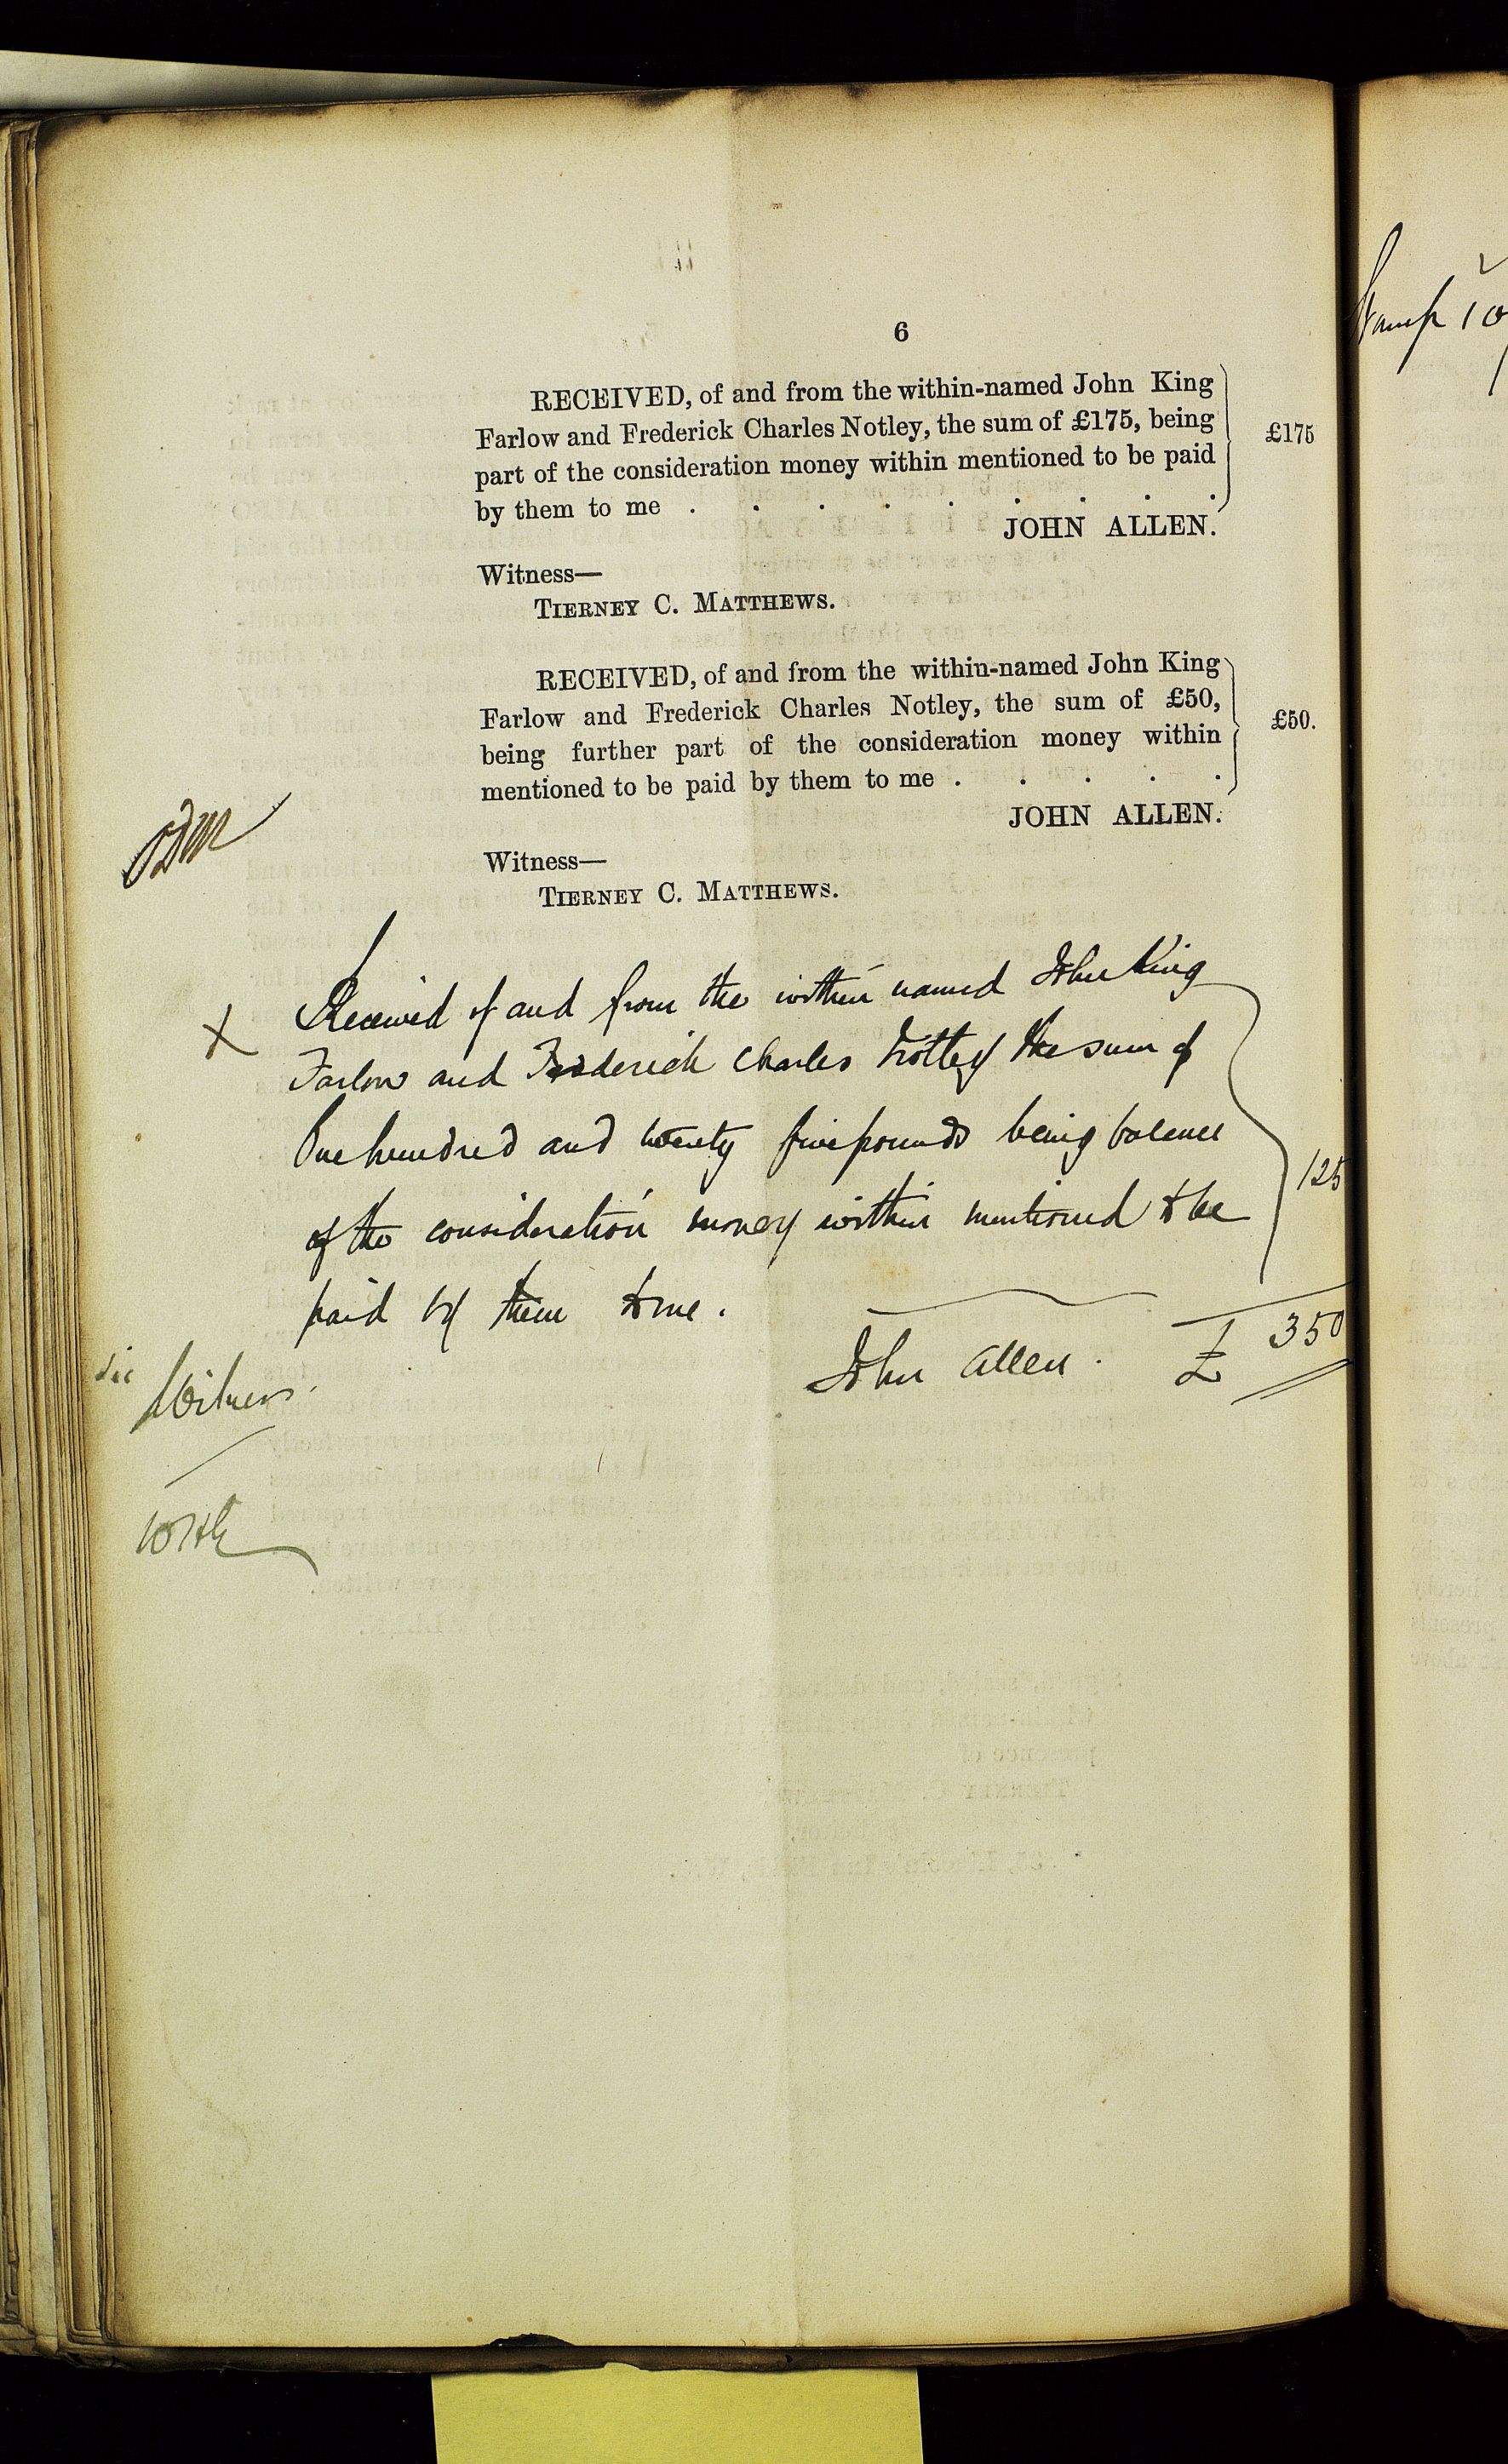 6
RECEIVED, of and from the within-named John King
Farlow and Frederick Charles Notley, the sum of £175, being
part of the consideration money within mentioned to be paid
by them to me . . . . . . . . .
£175
JOHN ALLEN.
Witness—
TIERNEY C. MATTHEWS.
RECEIVED, of and from the within-named John King
Farlow and Frederick Charles Notley, the sum of £50,
being further part of the consideration money within
mentioned to be paid by them to me . . . . .
£50.
JOHN ALLEN.
Witness—
TIERNEY C. MATTHEWS.
X Received of and from the within named John King
Farlow and Frederick Charles Notley the sum of
One hundred and twenty five pounds being balance
of the consideration money within mentioned to be
paid by them to me.
125
John Allen. £ 350
sic
Witness.
Stamp 10